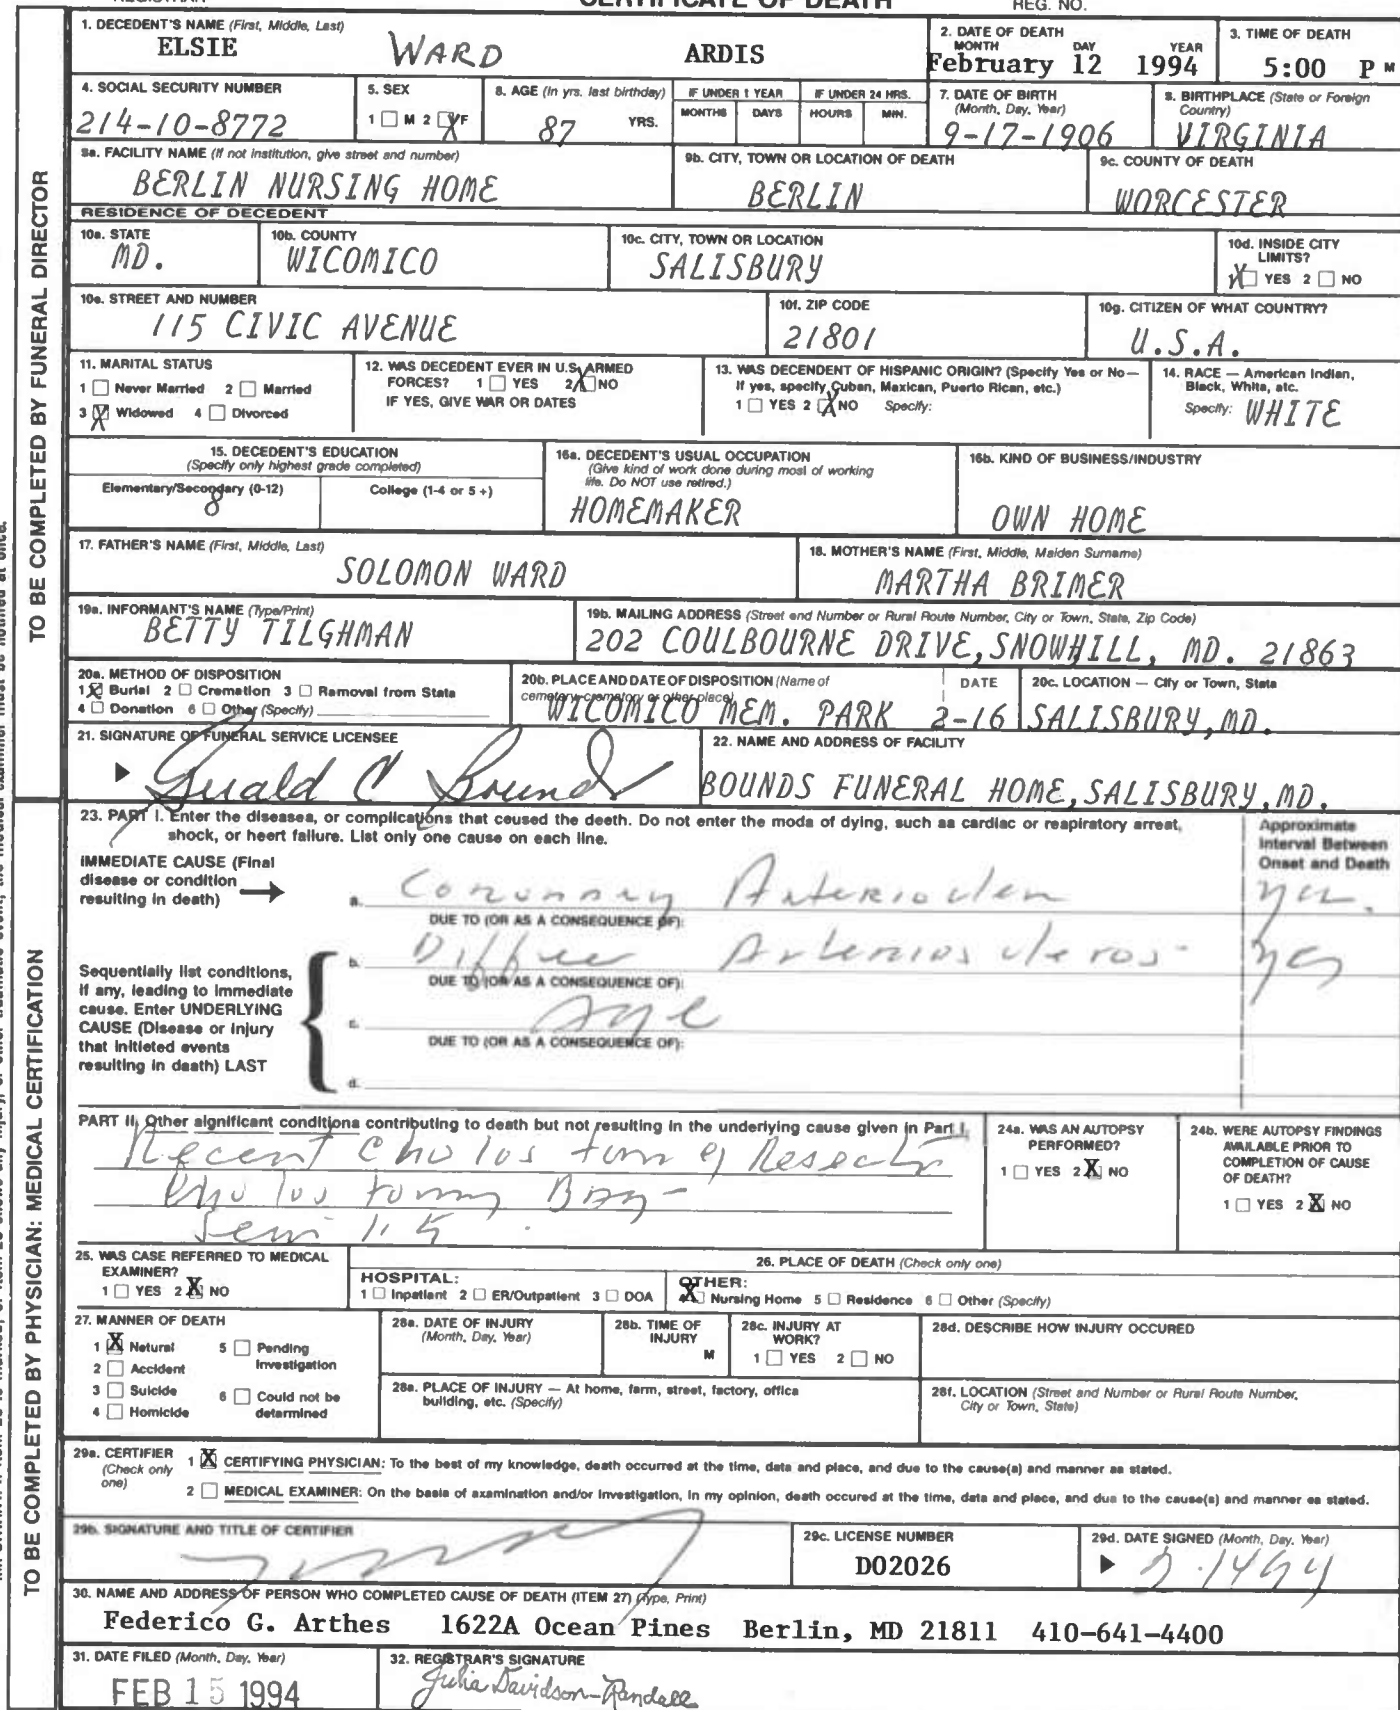 CERTIFICATE OF DEATH
REG. NO.
1. DECEDENT'S NAME (First, Middle, Last)
ELSIE WARD ARDIS
2. DATE OF DEATH
MONTH DAY YEAR
February 12 1994
3. TIME OF DEATH
5:00 P M
4. SOCIAL SECURITY NUMBER
214-10-8772
5. SEX
1 M 2 X F
6. AGE (In yrs. last birthday)
87 YRS.
IF UNDER 1 YEAR
MONTHS DAYS
IF UNDER 24 HRS.
HOURS MIN.
7. DATE OF BIRTH
(Month, Day, Year)
9-17-1906
8. BIRTHPLACE (State or Foreign
Country)
VIRGINIA
9a. FACILITY NAME (If not institution, give street and number)
BERLIN NURSING HOME
9b. CITY, TOWN OR LOCATION OF DEATH
BERLIN
9c. COUNTY OF DEATH
WORCESTER
RESIDENCE OF DECEDENT
10a. STATE
MD.
10b. COUNTY
WICOMICO
10c. CITY, TOWN OR LOCATION
SALISBURY
10d. INSIDE CITY
LIMITS?
1 X YES 2 NO
10e. STREET AND NUMBER
115 CIVIC AVENUE
10f. ZIP CODE
21801
10g. CITIZEN OF WHAT COUNTRY?
U.S.A.
11. MARITAL STATUS
1 Never Married 2 Married
3 X Widowed 4 Divorced
12. WAS DECEDENT EVER IN U.S. ARMED
FORCES? 1 YES 2 X NO
IF YES, GIVE WAR OR DATES
13. WAS DECENDENT OF HISPANIC ORIGIN? (Specify Yes or No—
If yes, specify Cuban, Maxican, Puerto Rican, etc.)
1 YES 2 X NO Specify:
14. RACE — American Indian,
Black, White, etc.
Specify: WHITE
15. DECEDENT'S EDUCATION
(Specify only highest grade completed)
Elementary/Secondary (0-12)
8
College (1-4 or 5+)
16a. DECEDENT'S USUAL OCCUPATION
(Give kind of work done during most of working
life. Do NOT use retired.)
HOMEMAKER
16b. KIND OF BUSINESS/INDUSTRY
OWN HOME
17. FATHER'S NAME (First, Middle, Last)
SOLOMON WARD
18. MOTHER'S NAME (First, Middle, Maiden Surname)
MARTHA BRIMER
19a. INFORMANT'S NAME (Type/Print)
BETTY TILGHMAN
19b. MAILING ADDRESS (Street and Number or Rural Route Number, City or Town, State, Zip Code)
202 COULBOURNE DRIVE, SNOWHILL, MD. 21863
20a. METHOD OF DISPOSITION
1 X Burial 2 Cremation 3 Ramoval from Stata
4 Donation 6 Other (Specify)
20b. PLACE AND DATE OF DISPOSITION (Name of
cemetery, crematory or other place)
DATE
WICOMICO MEM. PARK 2-16
20c. LOCATION — City or Town, Stata
SALISBURY, MD.
21. SIGNATURE OF FUNERAL SERVICE LICENSEE
Gerald C Bounds
22. NAME AND ADDRESS OF FACILITY
BOUNDS FUNERAL HOME, SALISBURY, MD.
TO BE COMPLETED BY FUNERAL DIRECTOR
23. PART I. Enter the diseasea, or complications that ceused the deeth. Do not enter the moda of dying, such aa cardiac or reapiratory arreat,
shock, or heert failure. List only one cause on each line.
Approximate
Interval Between
Onset and Death
IMMEDIATE CAUSE (Final
disease or condition
resulting in death)
a. Coronary
DUE TO (OR AS A CONSEQUENCE OF):
b. Arterioscleros-
DUE TO (OR AS A CONSEQUENCE OF):
Sequentially list conditions,
if any, leading to immediate
cause. Enter UNDERLYING
CAUSE (Disease or injury
that initieted events
resulting in daath) LAST
c. Age
DUE TO (OR AS A CONSEQUENCE OF):
d.
PART II. Other aignificant conditiona contributing to death but not resulting in the underlying cause given in Part I.
Recent
24a. WAS AN AUTOPSY
PERFORMED?
1 YES 2 X NO
24b. WERE AUTOPSY FINDINGS
AVAILABLE PRIOR TO
COMPLETION OF CAUSE
OF DEATH?
1 YES 2 X NO
25. WAS CASE REFERRED TO MEDICAL
EXAMINER?
1 YES 2 X NO
26. PLACE OF DEATH (Check only one)
HOSPITAL:
1 Inpatlent 2 ER/Outpatlent 3 DOA
OTHER:
X Nursing Home 5 Residence 6 Other (Specify)
27. MANNER OF DEATH
1 X Netural 5 Pending
Investigation
2 Accident
3 Suicide 6 Could not be
determined
4 Homicide
28a. DATE OF INJURY
(Month, Day, Year)
28b. TIME OF
INJURY
M
28c. INJURY AT
WORK?
1 YES 2 NO
28d. DESCRIBE HOW INJURY OCCURED
28e. PLACE OF INJURY — At home, farm, street, factory, offica
building, etc. (Specify)
28f. LOCATION (Street and Number or Rural Route Number,
City or Town, State)
29a. CERTIFIER
(Check only
one)
1 X CERTIFYING PHYSICIAN: To the best of my knowledge, death occurred at the time, data and place, and due to the cause(a) and manner aa stated.
2 MEDICAL EXAMINER: On the basia of axamination and/or investigation, in my opinion, death occured at the time, data and place, and due to the cause(s) and manner ea stated.
29b. SIGNATURE AND TITLE OF CERTIFIER
29c. LICENSE NUMBER
D02026
29d. DATE SIGNED (Month, Day, Year)
2.1494
30. NAME AND ADDRESS OF PERSON WHO COMPLETED CAUSE OF DEATH (ITEM 27) (Type, Print)
Federico G. Arthes 1622A Ocean Pines Berlin, MD 21811 410-641-4400
31. DATE FILED (Month, Day, Year)
FEB 15 1994
32. REGISTRAR'S SIGNATURE
Julia Davidson-Randall
TO BE COMPLETED BY PHYSICIAN: MEDICAL CERTIFICATION